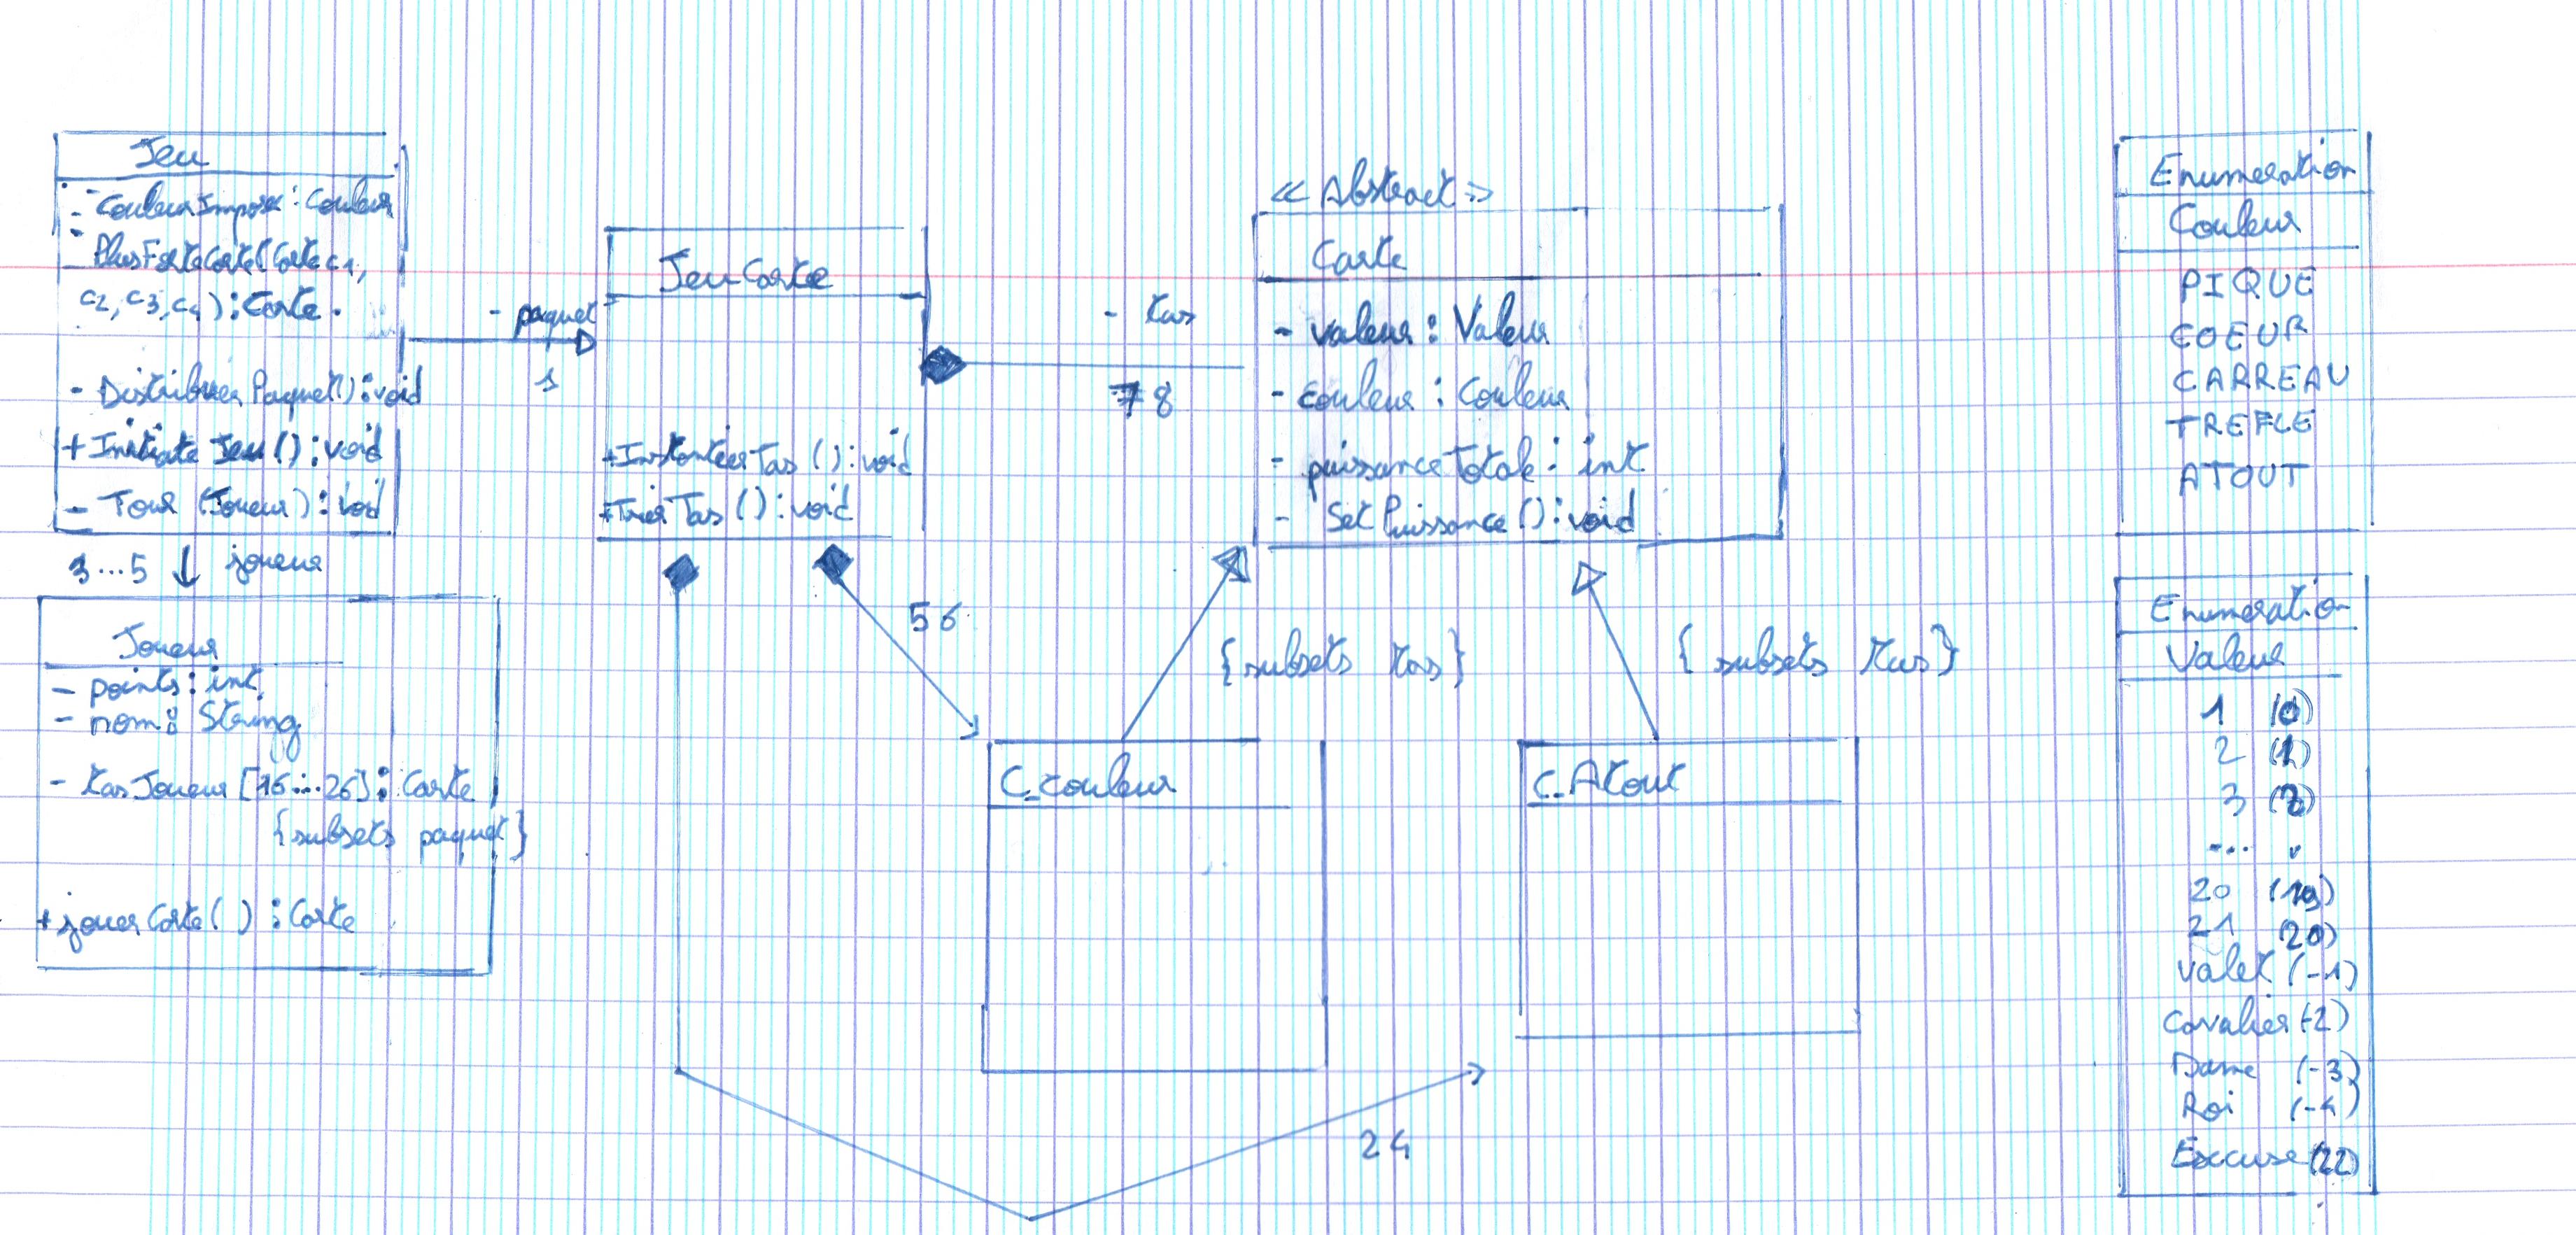 Jeu
- CouleurImpose : Couleur
- PlusForteCarte(Carte c1,
c2, c3, c4) : Carte
- Distribuer Paquet() : void
+ Initiate Jeu () : void
- Tour (Joueur) : void
3...5 joueur
Joueur
- points : int
- nom : String
- tasJoueur [16...26] : Carte
{subsets paquet}
+ jouer Carte ( ) : Carte
- paquet
1
Jeu Carte
+ Instancier Tas () : void
+ Trier Tas () : void
- tas
78
56
24
<< Abstract >>
Carte
- valeur : Valeur
- couleur : Couleur
- puissance Totale : int
- Set Puissance () : void
{subsets tas}
{subsets tas}
C_couleur
C_Atout
Enumeration
Couleur
PIQUE
COEUR
CARREAU
TREFLE
ATOUT
Enumeration
Valeur
1 (0)
2 (1)
3 (2)
...
20 (19)
21 (20)
Valet (-1)
Cavalier (-2)
Dame (-3)
Roi (-4)
Exccuse (22)